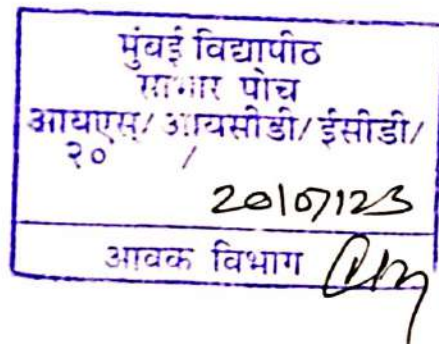 मुंबई विद्यापीठ
साभार पोच
आयएस/ आयसीडी/ ईसीडी/
२० /
20/07/23
आवक विभाग